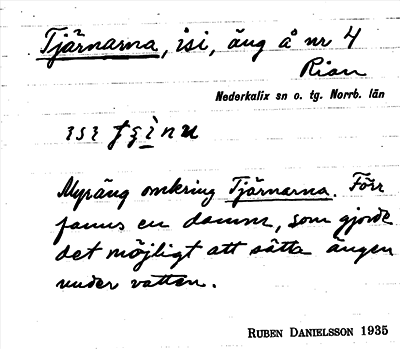 Tjärnarna, isi, äng å nr 4
Rian
Nederkalix sn o. tg. Norrb. län
ısı
Myräng omkring Tjärnarna. Förr
fanns en damm, som gjorde
det möjligt att sätta ängen
under vatten.
RUBEN DANIELSSON 1935